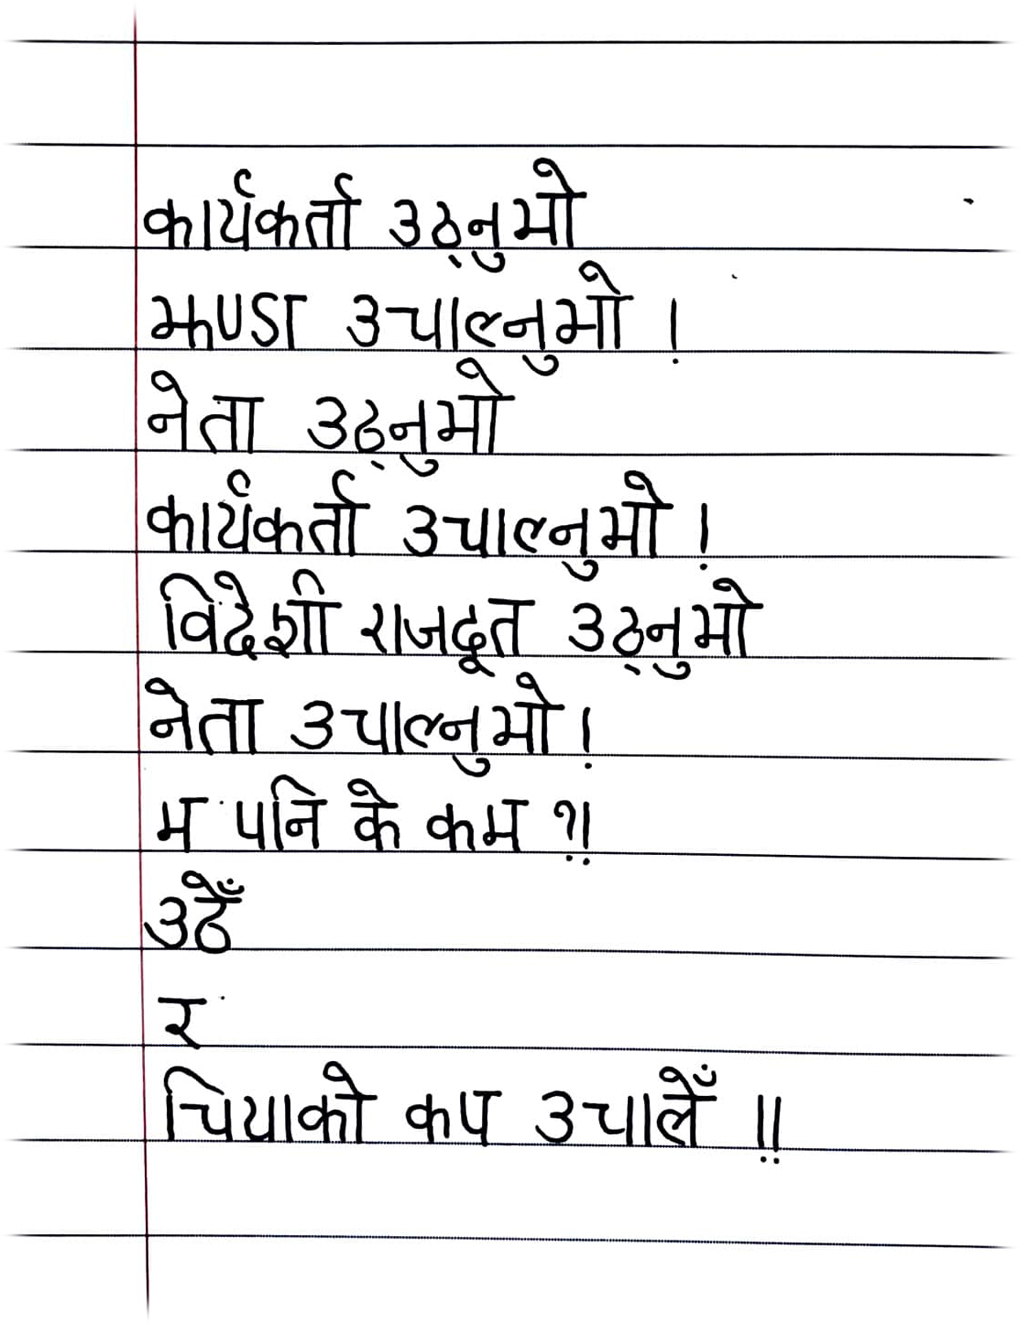 कार्यकर्ता उठ्नुभो
झण्डा उचाल्नुभो !
नेता उठ्नुभो
कार्यकर्ता उचाल्नुभो !
विदेशी राजदूत उठ्नुभो
नेता उचाल्नुभो !
म पनि के कम ?!
उठेँ
र
चियाको कप उचालेँ !!